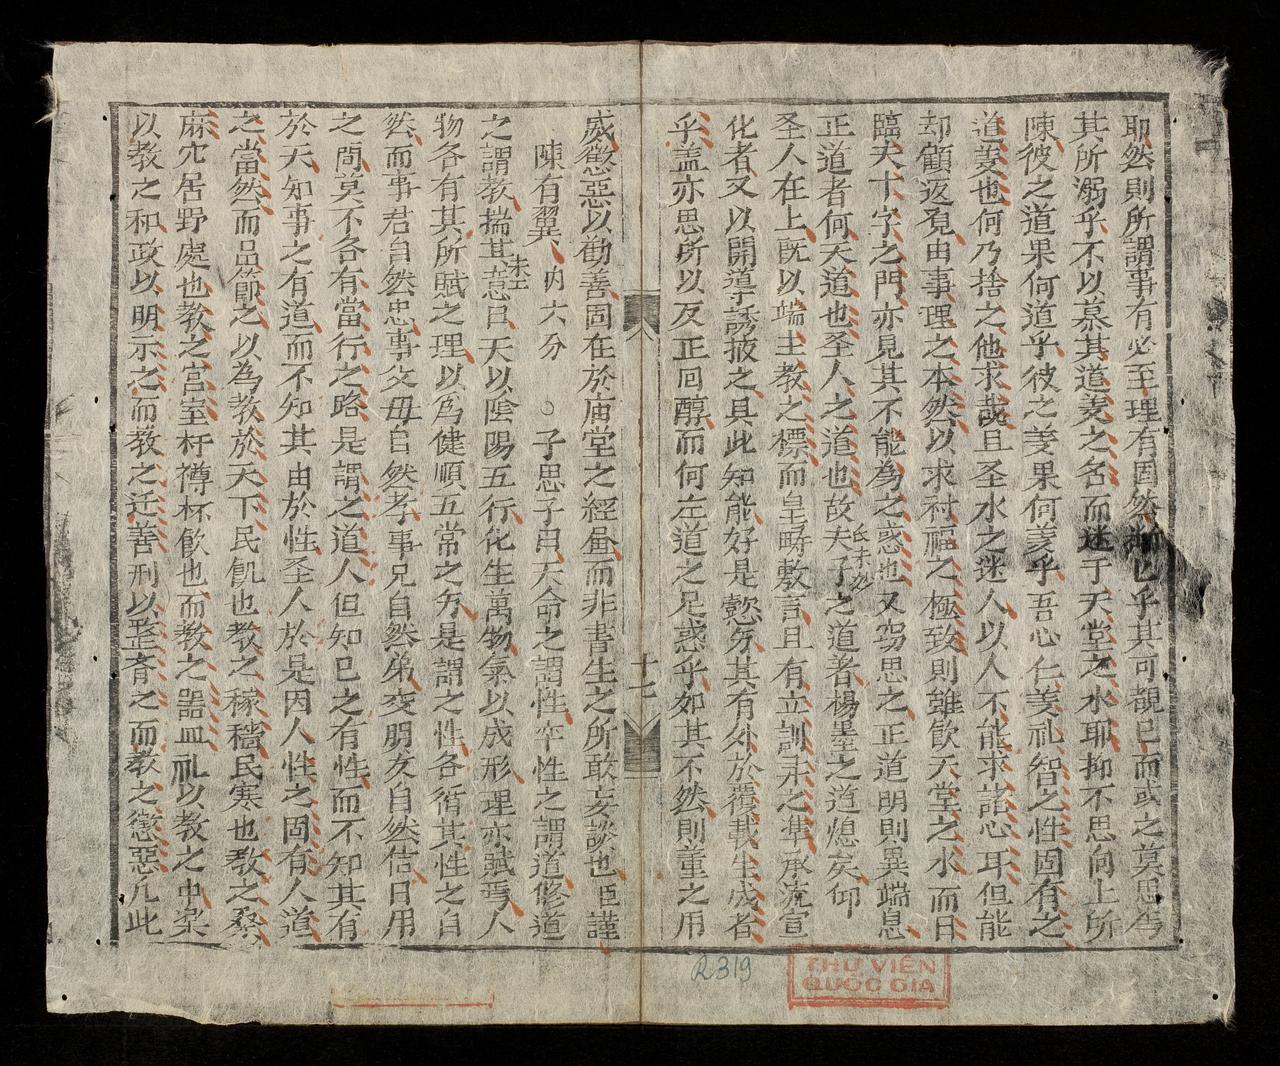 耶然則所謂事有必至理有固然者已乎其可覩已而或之莫思焉
其所溺乎不以慕其道羙之名而迷于天堂之水耶抑不思向上所
陳彼之道果何道乎彼之羙果何羙乎吾心仁羙礼智之性固有之
道羙也何乃捨之他求哉且圣水之迷人以人不能求諸心耳但能
却顧返覓由事理之本然以求衬福之極致則雖飲天堂之水而日
臨夫十字之門亦見其不能為之惑也又窃思之正道明則異端息
正道者何天道也圣人之道也故夫子之道著楊墨之道熄矣仰
氏未妙
圣人在上既以端主教之標而皇畴敷言且有立訓衆之準承流宣
化者又以開導誘掖之具此知能好是懿外其有外於覆載生成者
乎盖亦思所以反正囘醇而何左道之足惑乎如其不然則董之用
十七
威懲惡以勸善固在於庙堂之經畫而非書生之所敢妄談也臣謹
陳有翼 内六分 ○子思子曰天命之謂性卒性之謂道修道
之謂教揣其意曰天以陰陽五行化生萬物氣以成形理亦賦焉人
朱主
物各有其所賦之理以爲健順五常之外是謂之性各循其性之自
然而事君自然忠事父母自然孝事兄自然弟交朋友自然信日用
之間莫不各有當行之路是謂之道人但知已之有性而不知其有
於天知事之有道而不知其由於性圣人於是因人性之固有人道
之當然而品節之以為教於天下民飢也教之稼穡民寒也教之桑
麻穴居野處也教之宫室杅樽杯飲也而教之噐皿礼以教之中楽
以教之和政以明示之而教之迁善刑以整斉之而教之懲惡凡此
R319
THƯ VIỆN
QUỐC GIA